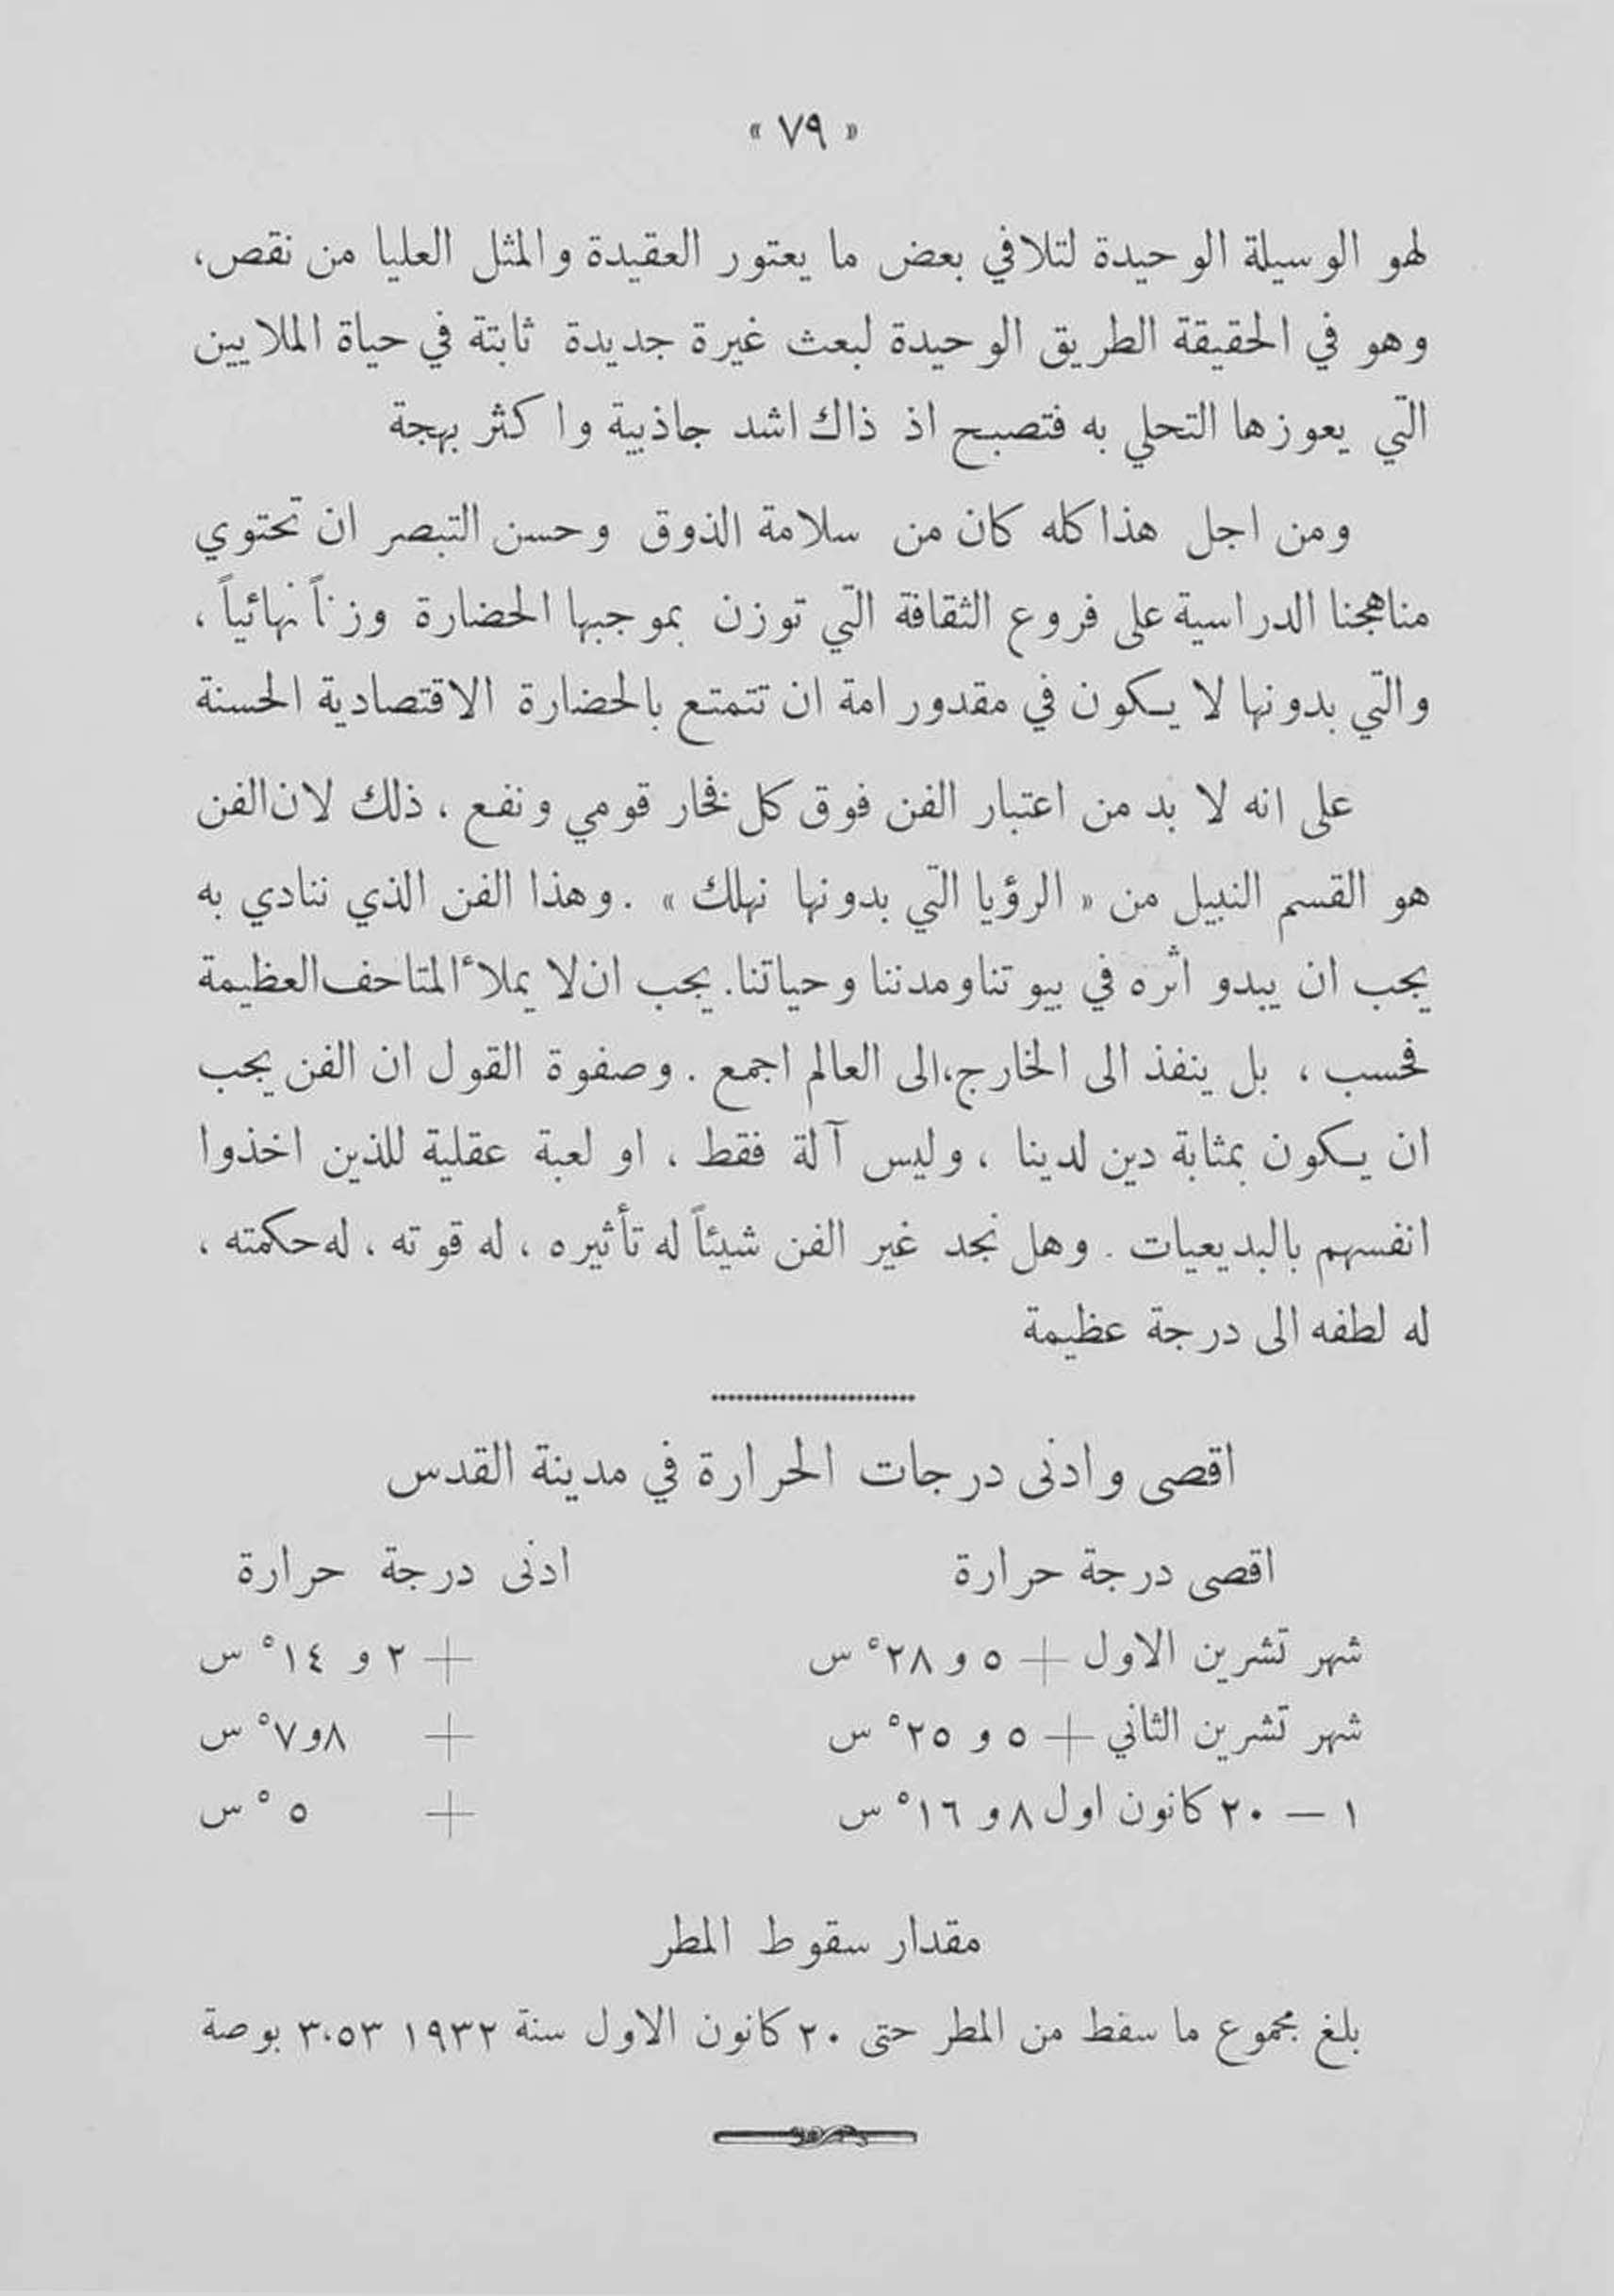 « ٧٩ »
لهو الوسيلة الوحيدة لتلافي بعض ما يعتور العقيدة والمثل العليا من نقص،
وهو في الحقيقة الطريق الوحيدة لبعث غيرة جديدة ثابتة في حياة الملايين
التي يعوزها التحلي به فتصبح اذ ذاك اشد جاذبية واكثر بهجة
ومن اجل هذا كله كان من سلامة الذوق وحسن التبصر ان تحتوي
مناهجنا الدراسية على فروع الثقافة التي توزن بموجبها الحضارة وزناً نهائياً ،
والتي بدونها لا يكون في مقدور امة ان تتمتع بالحضارة الاقتصادية الحسنة
على انه لا بد من اعتبار الفن فوق كل فخار قومي ونفع ، ذلك لان الفن
هو القسم النبيل من « الرؤيا التي بدونها نهلك » . وهذا الفن الذي ننادي به
يجب ان يبدو اثره في بيوتنا ومدننا وحياتنا. يجب ان لا يملأ المتاحف العظيمة
فحسب ، بل ينفذ الى الخارج، الى العالم اجمع . وصفوة القول ان الفن يجب
ان يكون بمثابة دين لدينا ، وليس آلة فقط ، او لعبة عقلية للذين اخذوا
انفسهم بالبديعيات . وهل نجد غير الفن شيئاً له تأثيره ، له قوته ، له حكمته ،
له لطفه الى درجة عظيمة
اقصى وادنى درجات الحرارة في مدينة القدس
اقصى درجة حرارة ادنى درجة حرارة
شهر تشرين الاول + ٥ و ٢٨° س + ٢ و ١٤° س
شهر تشرين الثاني + ٥ و ٢٥° س + ٨و٧° س
١ — ٢٠ كانون اول ٨ و ١٦° س + ٥° س
مقدار سقوط المطر
بلغ مجموع ما سفط من المطر حتى ٢٠ كانون الاول سنة ١٩٣٢ ٣،٥٣ بوصة